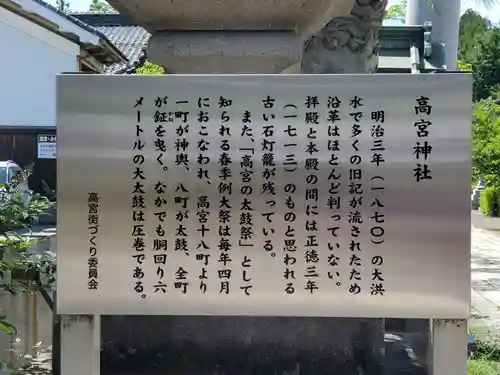 高宮神社
明治三年（一八七〇）の大洪
水で多くの旧記が流されたため
沿革はほとんど判っていない。
拝殿と本殿の間には正徳三年
（一七一三）のものと思われる
古い石灯籠が残っている。
また、「高宮の太鼓祭」として
知られる春季例大祭は毎年四月
におこなわれ、高宮十八町より
一町が神輿、八町が太鼓、全町
が鉦を曳く。なかでも胴回り六
メートルの大太鼓は圧巻である。
高宮街づくり委員会